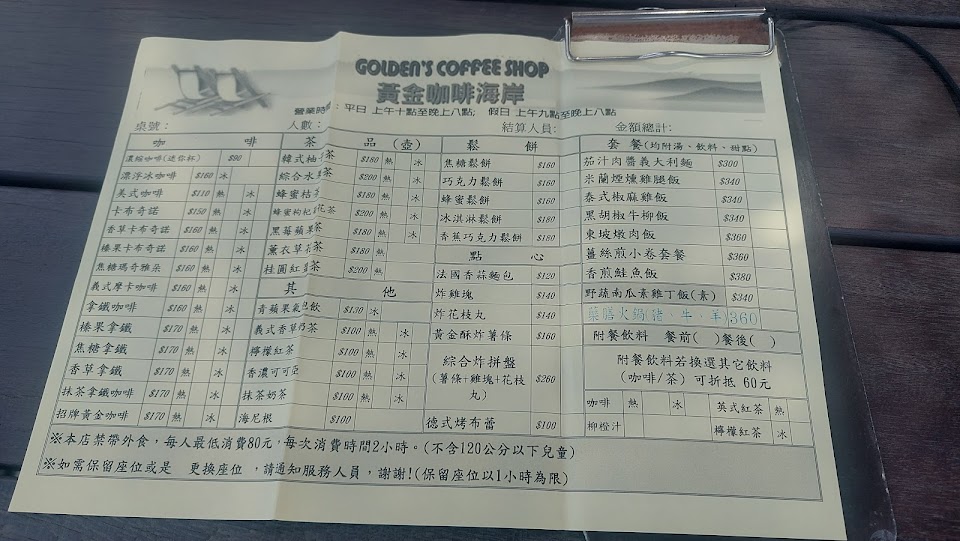 GOLDEN'S COFFEE SHOP
黃金咖啡海岸
營業時 : 平日 上午十點至晚上八點; 假日 上午九點至晚上八點
桌號: 人數: 結算人員: 金額總計:
咖 啡
濃縮咖啡(迷你杯) $90
漂浮冰咖啡 $160 冰
美式咖啡 $110 熱 冰
卡布奇諾 $150 熱 冰
香草卡布奇諾 $160 熱 冰
榛果卡布奇諾 $160 熱 冰
焦糖瑪奇雅朵 $160 熱 冰
義式摩卡咖啡 $160 熱 冰
拿鐵咖啡 $160 熱 冰
榛果拿鐵 $170 熱 冰
焦糖拿鐵 $170 熱 冰
香草拿鐵 $170 熱 冰
抹茶拿鐵咖啡 $170 熱 冰
招牌黃金咖啡 $170 熱 冰
茶 品 (壺)
韓式柚 茶 $160 熱 冰
綜合水 茶 $200 熱 冰
蜂蜜桔 茶 $180 熱 冰
蜂蜜枸杞 花茶 $200 熱 冰
黑莓蘋果 茶 $180 熱 冰
薰衣草 茶 $180 熱
桂圓紅 茶 $200 熱
其 他
青蘋果氣包飲 $130 冰
義式香草奶茶 $100 熱 冰
檸檬紅茶 $100 熱 冰
香濃可可亞 $100 熱 冰
抹茶奶茶 $100 熱 冰
海尼根 $100
鬆 餅
焦糖鬆餅 $160
巧克力鬆餅 $160
蜂蜜鬆餅 $160
冰淇淋鬆餅 $180
香蕉巧克力鬆餅 $180
點 心
法國香蒜麵包 $120
炸雞塊 $140
炸花枝丸 $140
黃金酥炸薯條 $160
綜合炸拼盤
(薯條+雞塊+花枝丸) $260
德式烤布蕾 $100
套 餐(均附湯、飲料、甜點)
茄汁肉醬義大利麵 $300
米蘭煙燻雞腿飯 $340
泰式椒麻雞飯 $340
黑胡椒牛柳飯 $340
東坡燉肉飯 $360
薑絲煎小卷套餐 $360
香煎鮭魚飯 $380
野蔬南瓜素雞丁飯(素) $340
藥膳火鍋(豬、牛、羊)360
附餐飲料 餐前( )餐後( )
附餐飲料若換選其它飲料
(咖啡/茶) 可折抵 60元
咖啡 熱 冰 英式紅茶 熱
柳橙汁 檸檬紅茶 冰
※本店禁帶外食,每人最低消費80元,每次消費時間2小時。(不含120公分以下兒童)
※如需保留座位或是 更換座位 ,請通知服務人員,謝謝!(保留座位以1小時為限)